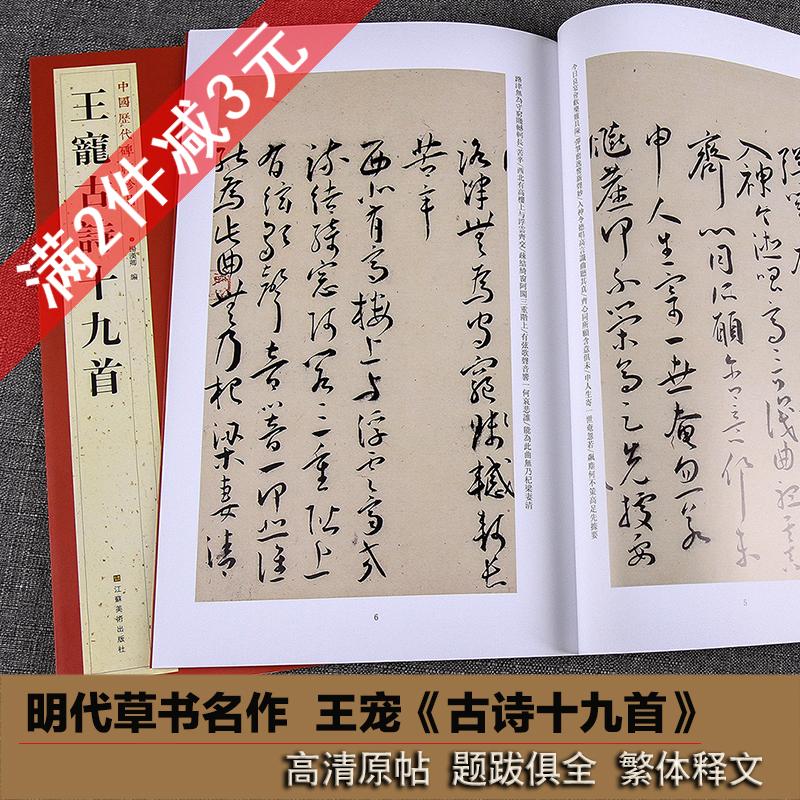 满2件减3元
中國歷代碑
王寵古詩十九首
楊漢卿 編
江蘇美術出版社
今日良宴會歡樂難具陳/彈箏奮逸響新聲妙/入神令德唱高言識曲聽其真/齊心同所願含意俱未/申人生寄一世奄忽若/飆塵何不策高足先據要
入神令德唱高言識曲聽其真
齊心同所願含意俱未
申人生寄一世奄忽若
飆塵何不策高足先據要
5
路津無為守窮賤轗軻長/苦辛/西北有高樓上与浮雲齊交/疎結綺窗阿閣三重階上/有弦歌聲音響一何哀悲誰/能為此曲無乃杞梁妻清
路津無為守窮賤轗軻長
苦辛
西北有高樓上与浮雲齊交
疎結綺窗阿閣三重階上
有弦歌聲音響一何悲誰
能為此曲無乃杞梁妻清
6
明代草书名作 王宠《古诗十九首》
高清原帖 题跋俱全 繁体释文